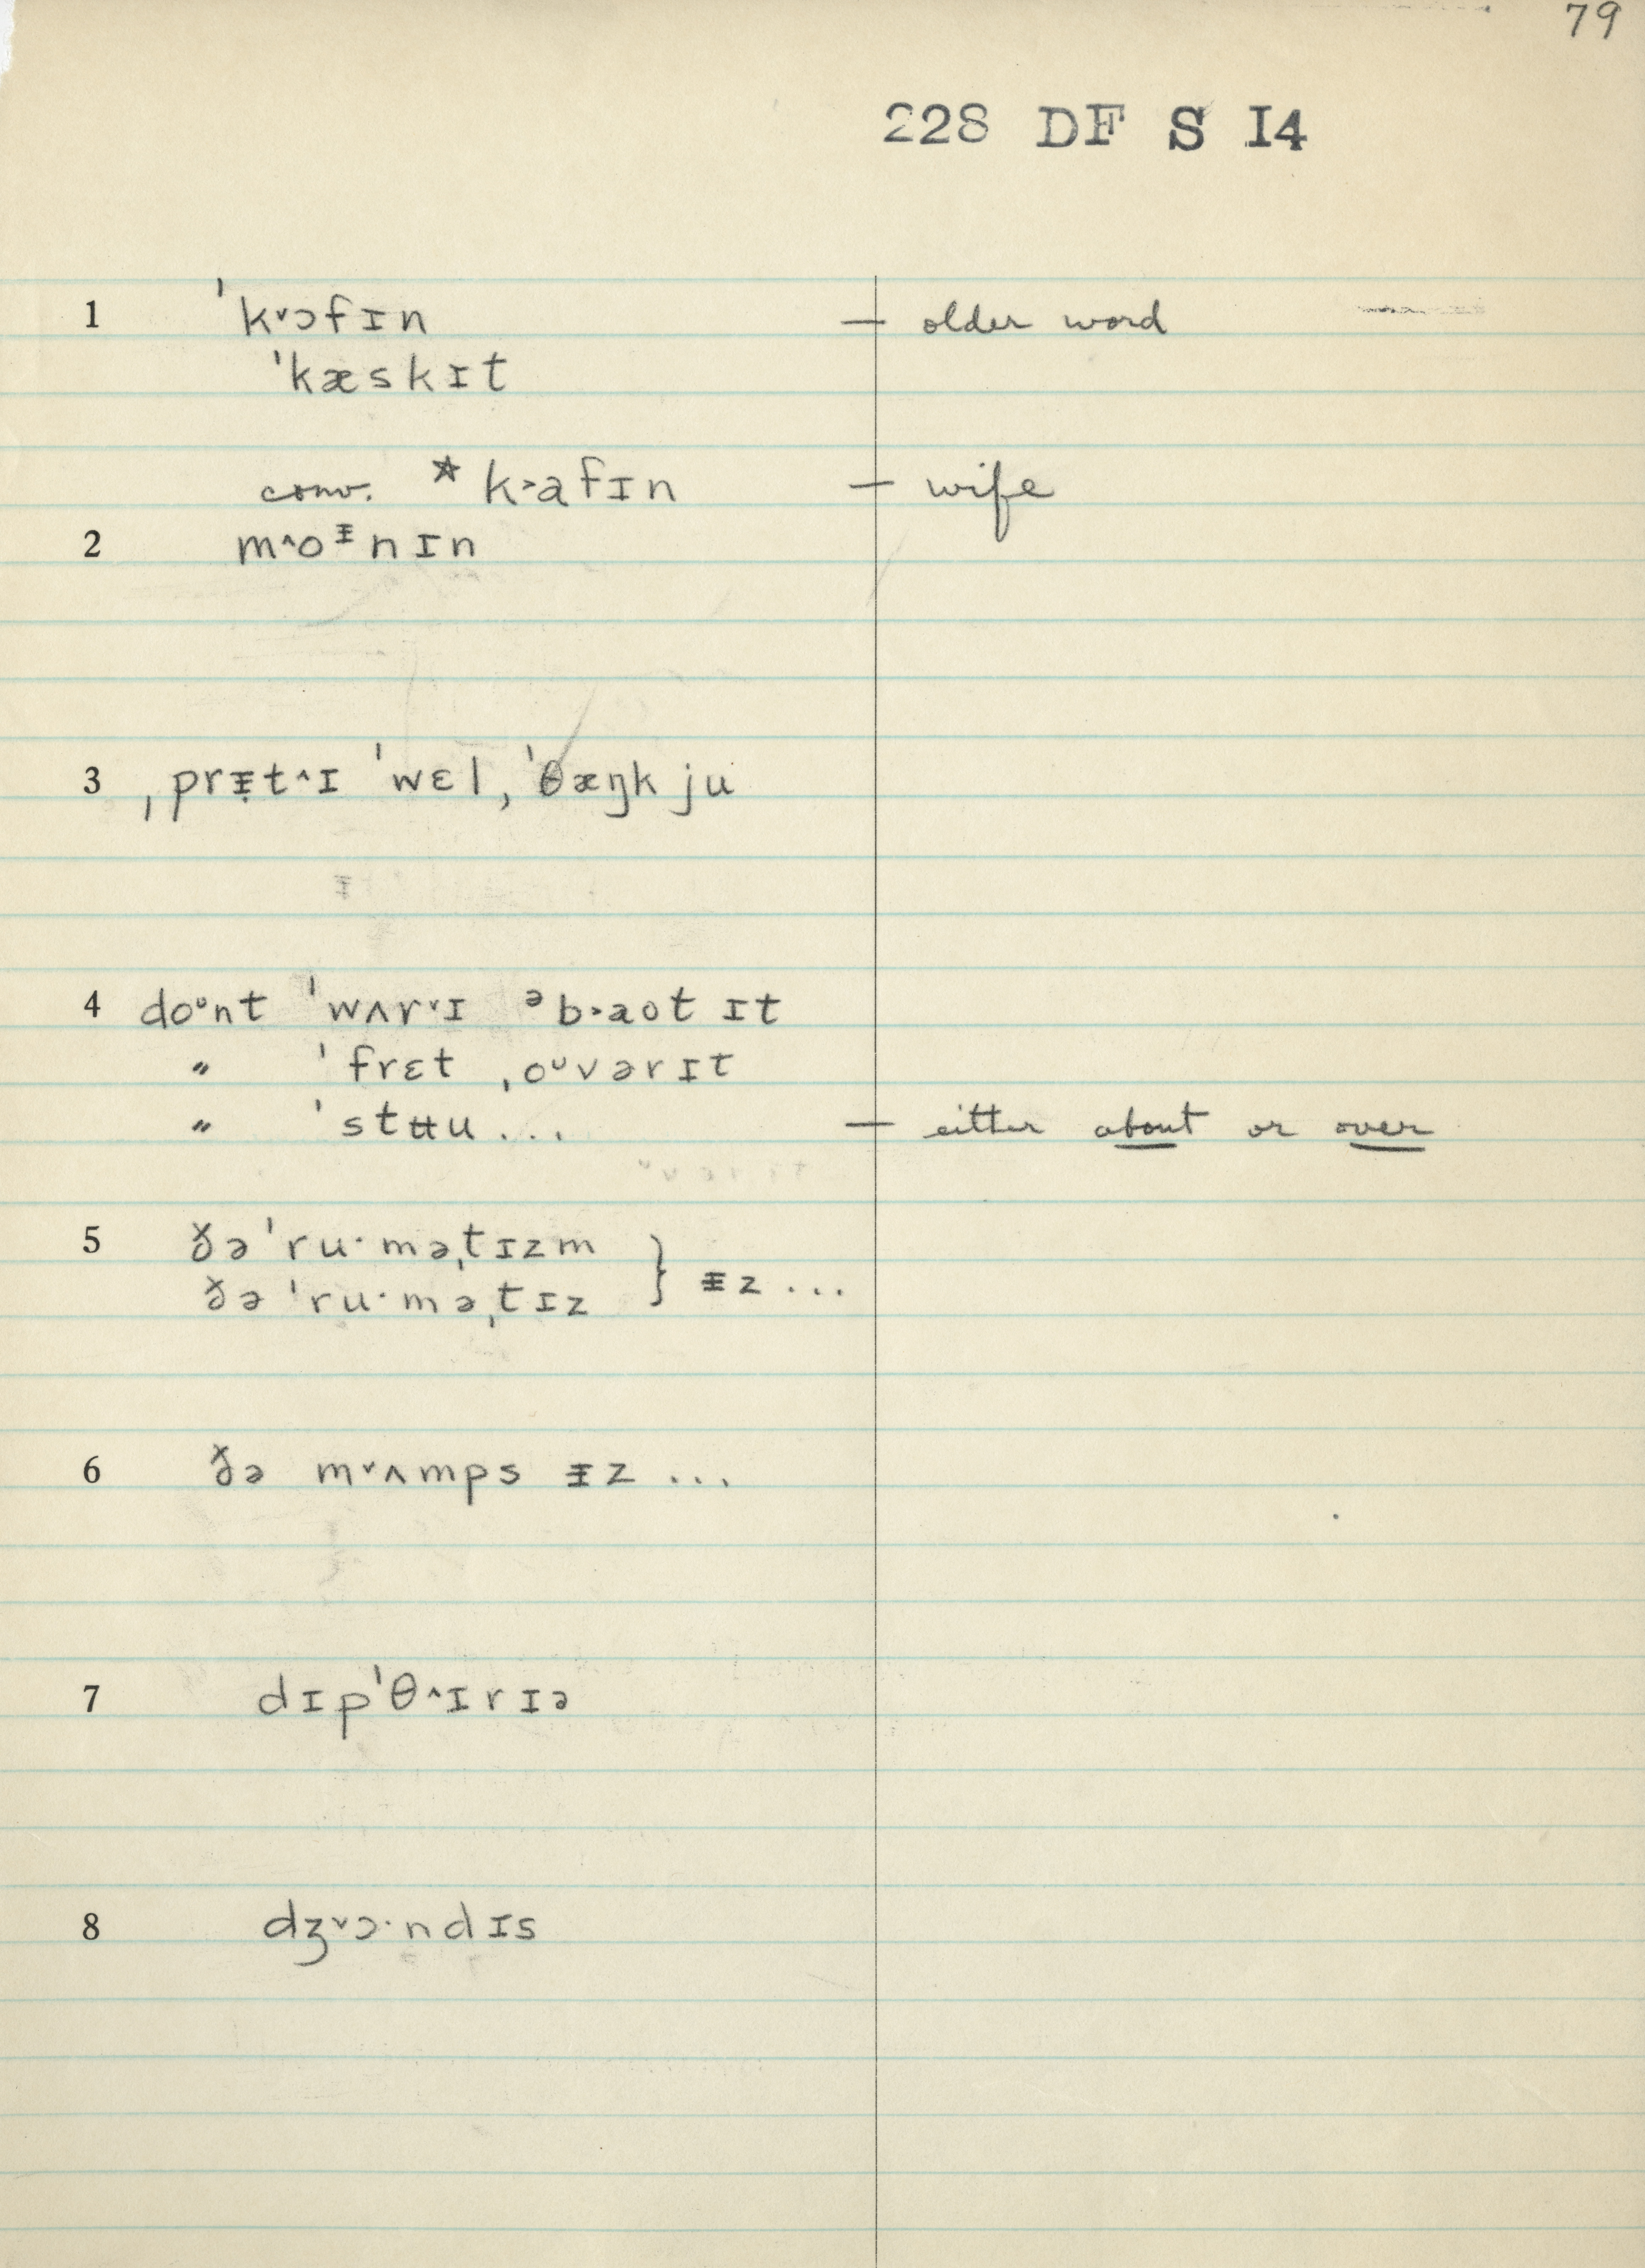 79
228 DF S I4
1 ˈk˅ɔfɪn — older word
ˈkæskɪt
conv. * k˃afɪn — wife
2 m˄oᵻnɪn
3 ˌprᵻ̣t˄ɪ ˈwɛl, ˈθæŋk ju
4 doᶷnt ˈwʌr˅ɪ ᵊb˃aot ɪt
〃 ˈfrɛt ˌoᶷvərɪt
〃 ˈstʉu ... — either about or over
5 ðə ˈru·məˌtɪzm } ᵻz ...
ðə ˈru·məˌtɪz
6 ðə m˅ʌmps ᵻz ...
7 dɪpˈθ˄ɪrɪə
8 dʒ˅ɔ·ndɪs